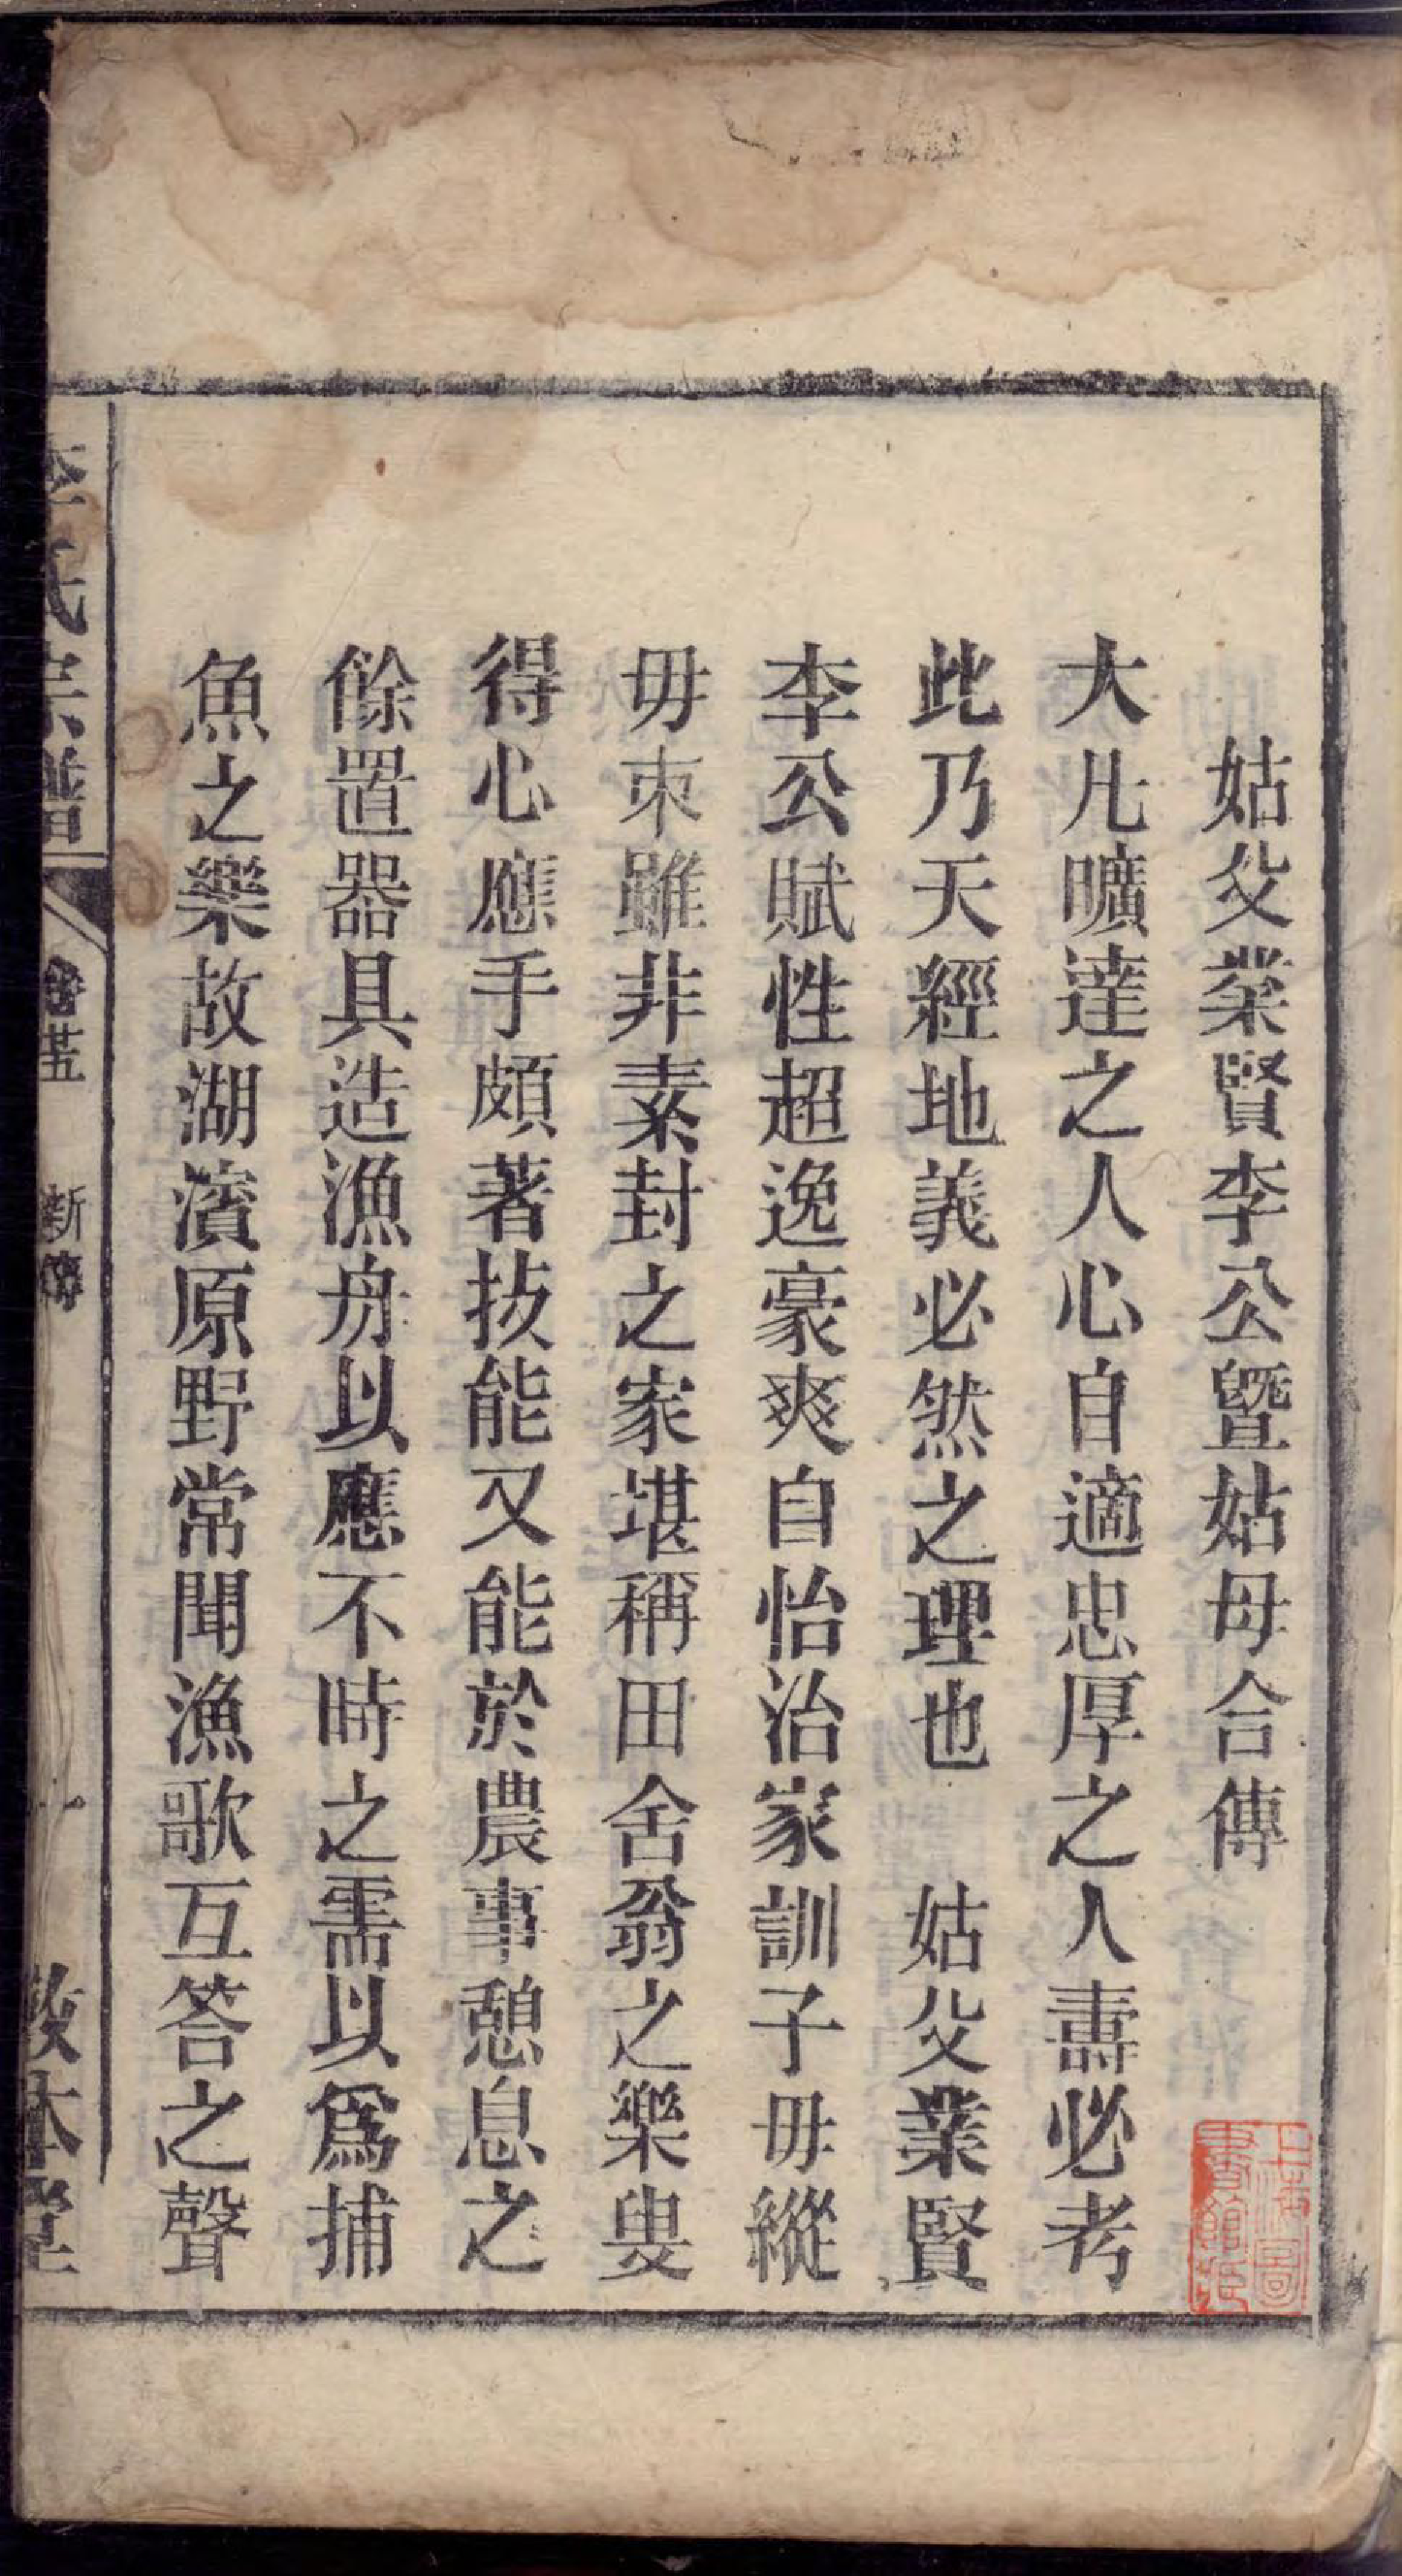 姑父業賢李公暨姑母合傳
大凡曠達之人心自適忠厚之人壽必考
此乃天經地義必然之理也　姑父業賢
李公賦性超逸豪爽自怡治家訓子毋縱
毋朿雖非素封之家堪稱田舍翁之樂叟
得心應手頗著技能又能於農事憩息之
餘置器具造漁舟以應不時之需以爲捕
魚之樂故湖濱原野常聞漁歌互答之聲
李氏宗譜
卷廿五
新傳
一
敦本堂
上海圖書館藏